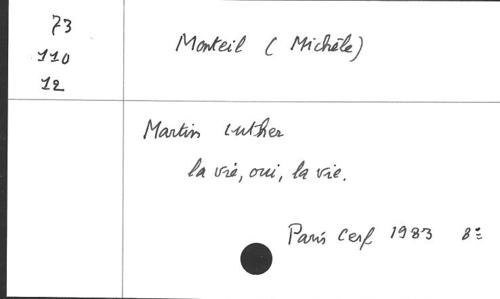 73
110
12
Monteil (Michèle)
Martin Luther
la vie, oui, la vie.
Paris Cerf 1983 8°